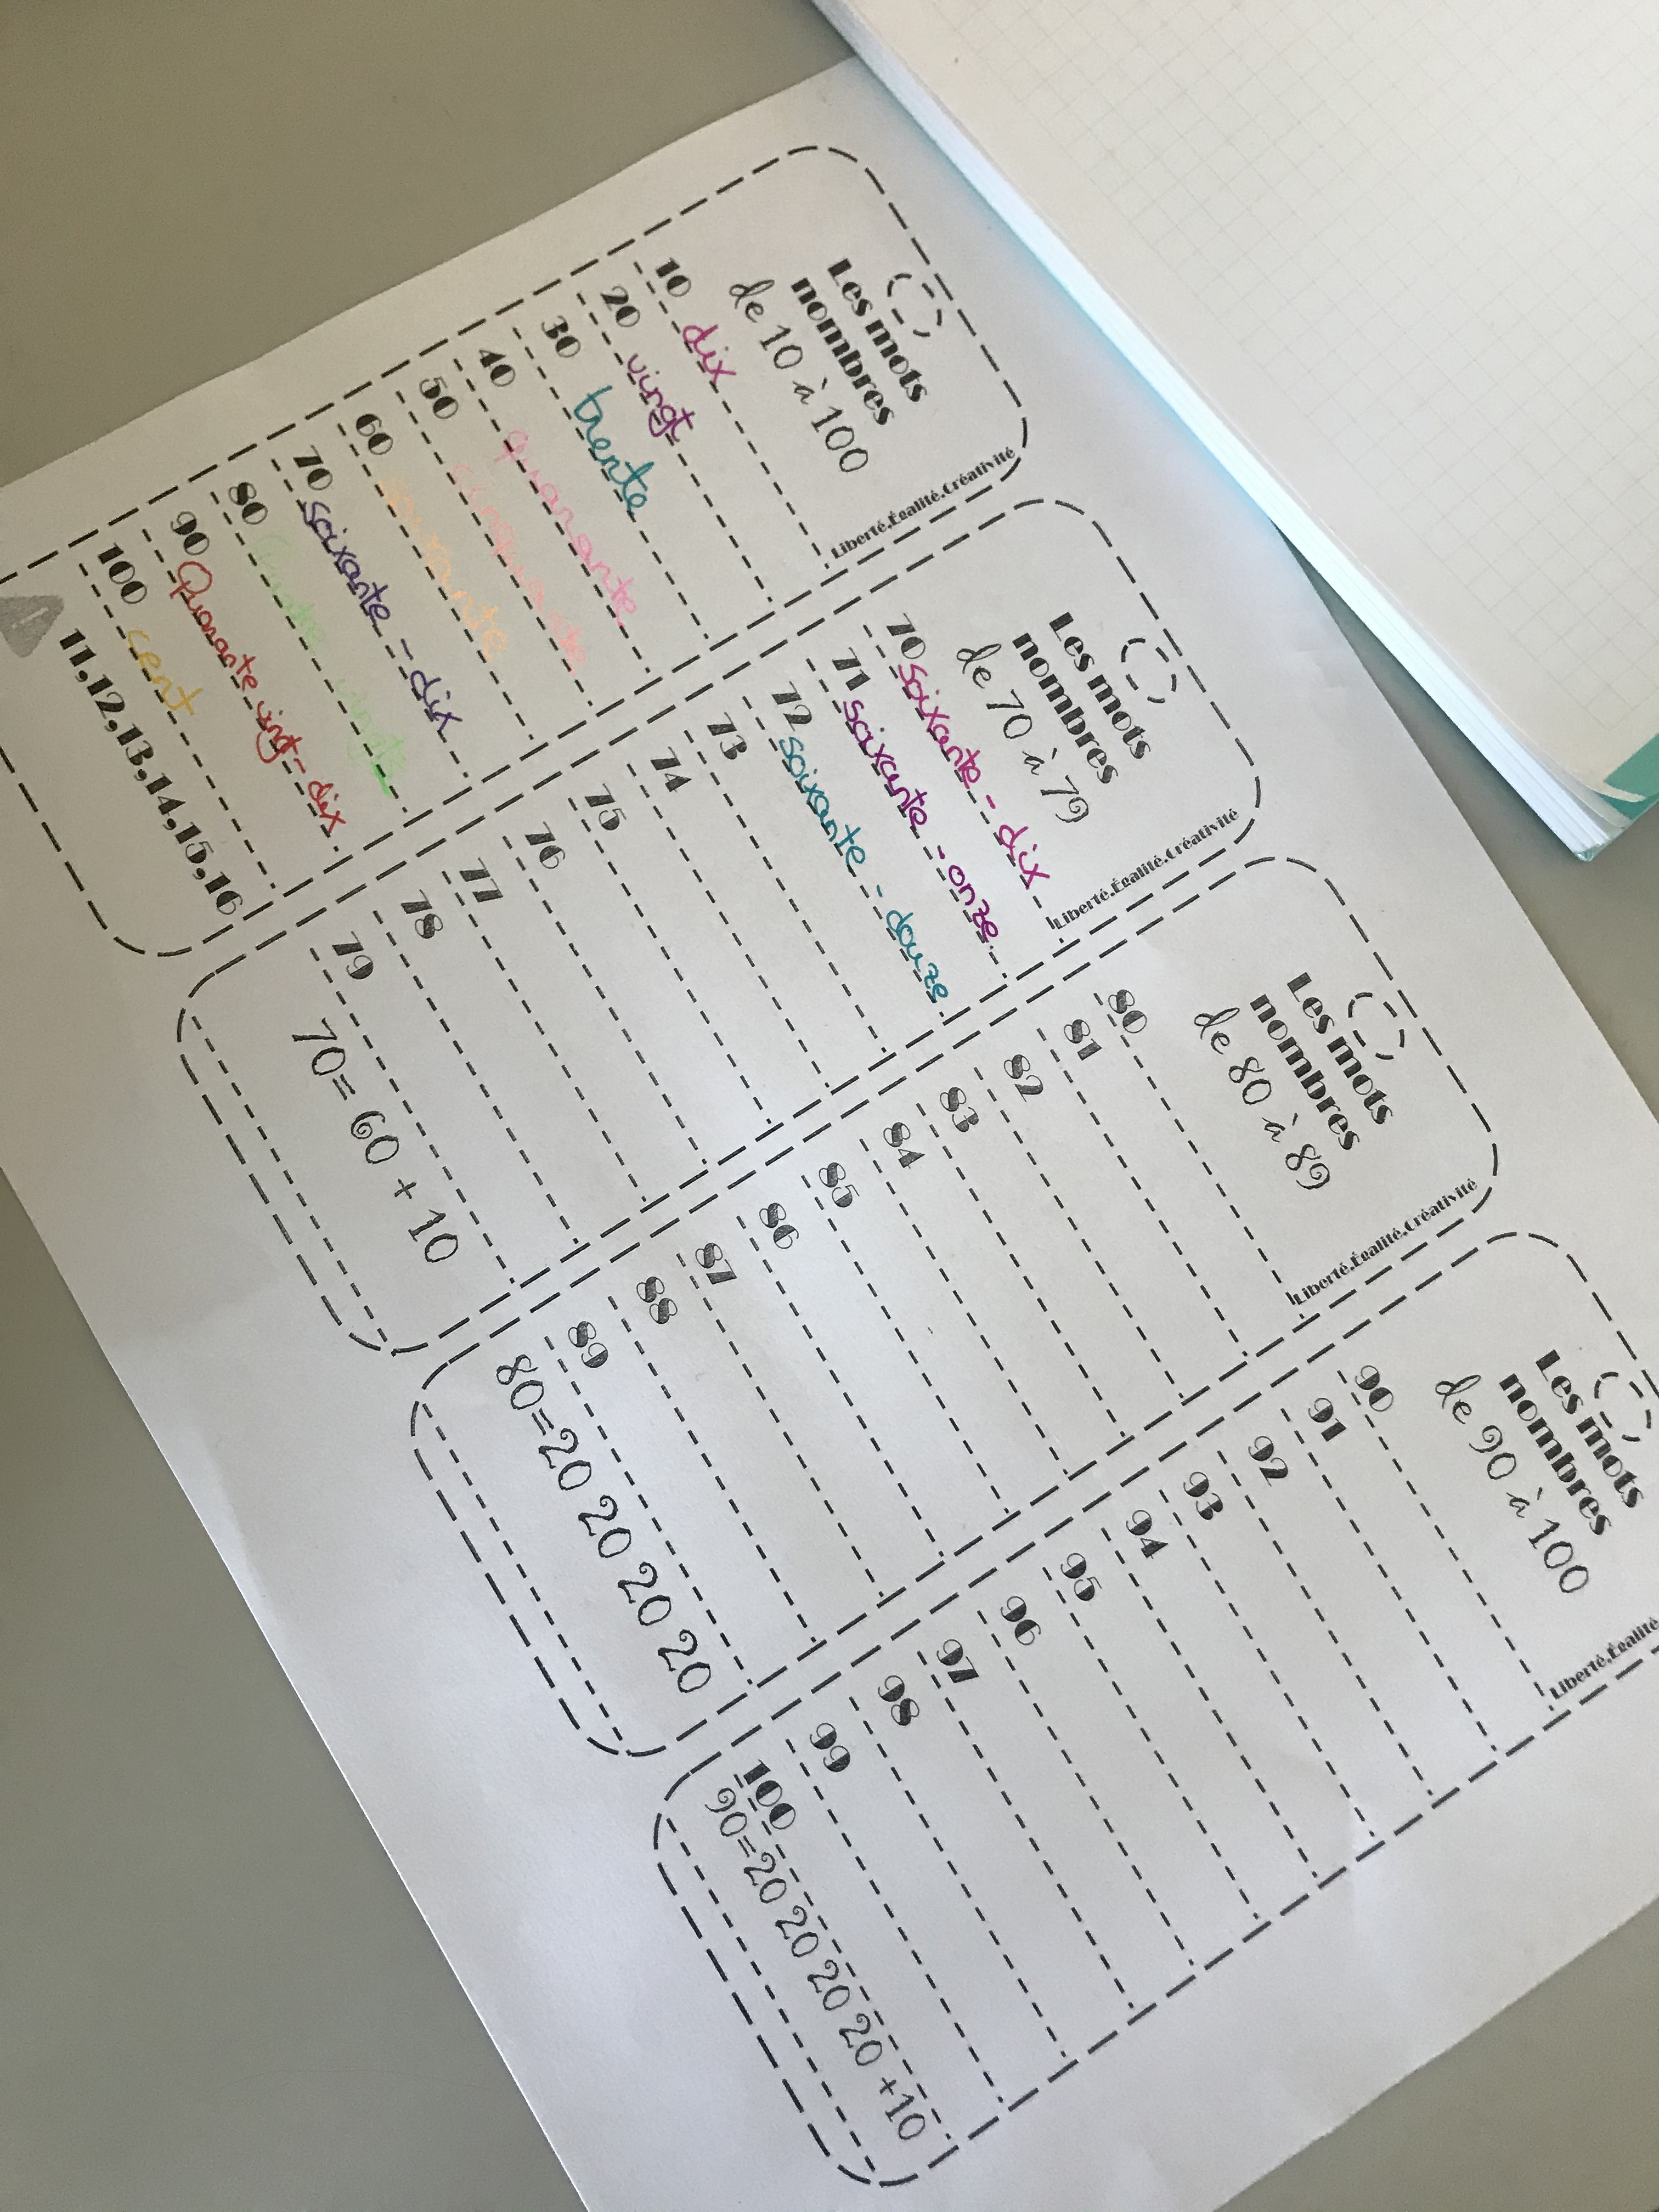 Les mots
nombres
de 10 à 100
Liberté.Égalité.Créativité
10 dix
20 vingt
30 trente
40 quarante
50
60 soixante
70 soixante-dix
80 quatre vingts
90 Quarante vingt-dix
100 cent
11,12,13,14,15,16
Les mots
nombres
de 70 à 79
Liberté.Égalité.Créativité
70 soixante-dix
71 soixante-onze
72 soixante-douze
73
74
75
76
77
78
79
70= 60 + 10
Les mots
nombres
de 80 à 89
Liberté.Égalité.Créativité
80
81
82
83
84
85
86
87
88
89
80=20 20 20 20
Les mots
nombres
de 90 à 100
Liberté.Égalité
90
91
92
93
94
95
96
97
98
99
100
90=20 20 20 20 +10